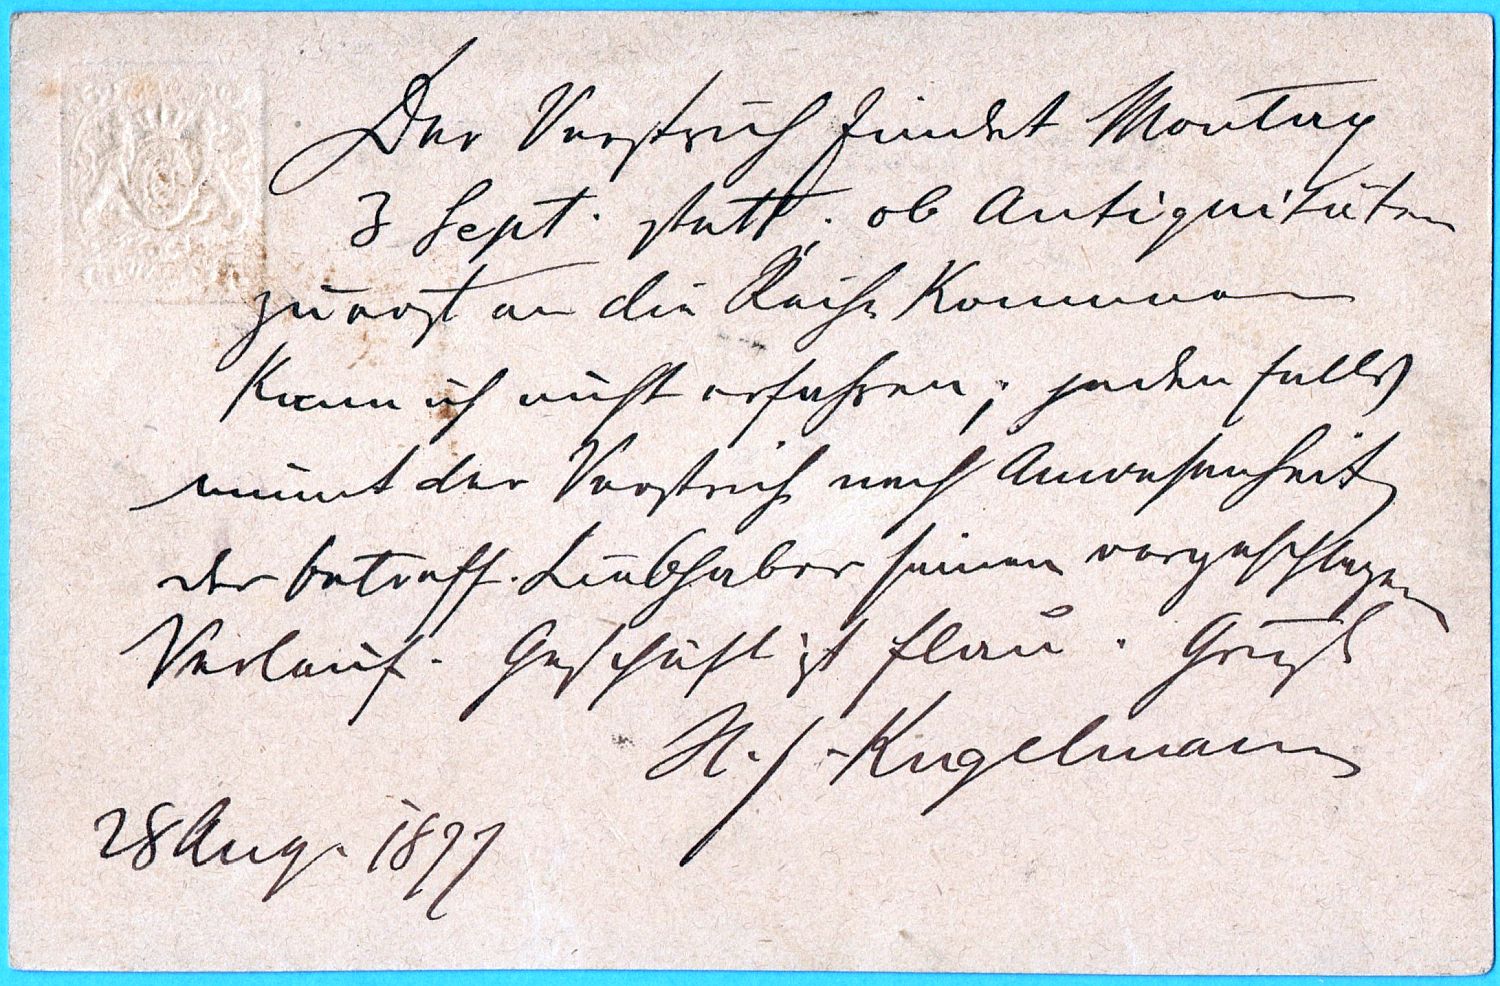 Der Verstrich findet Montag
3 Sept. statt. ob Antiquitäten
zuerst an die Reihe kommen
kann ich nicht erfahren; jeden falls
nimmt der Verstrich nach Anwesenheit
der betreff. Liebhaber seinen vorgeschlagenen
Verlauf. Geschäft ist flau. Grüßt
H. S. Kugelmann
28 Aug. 1877